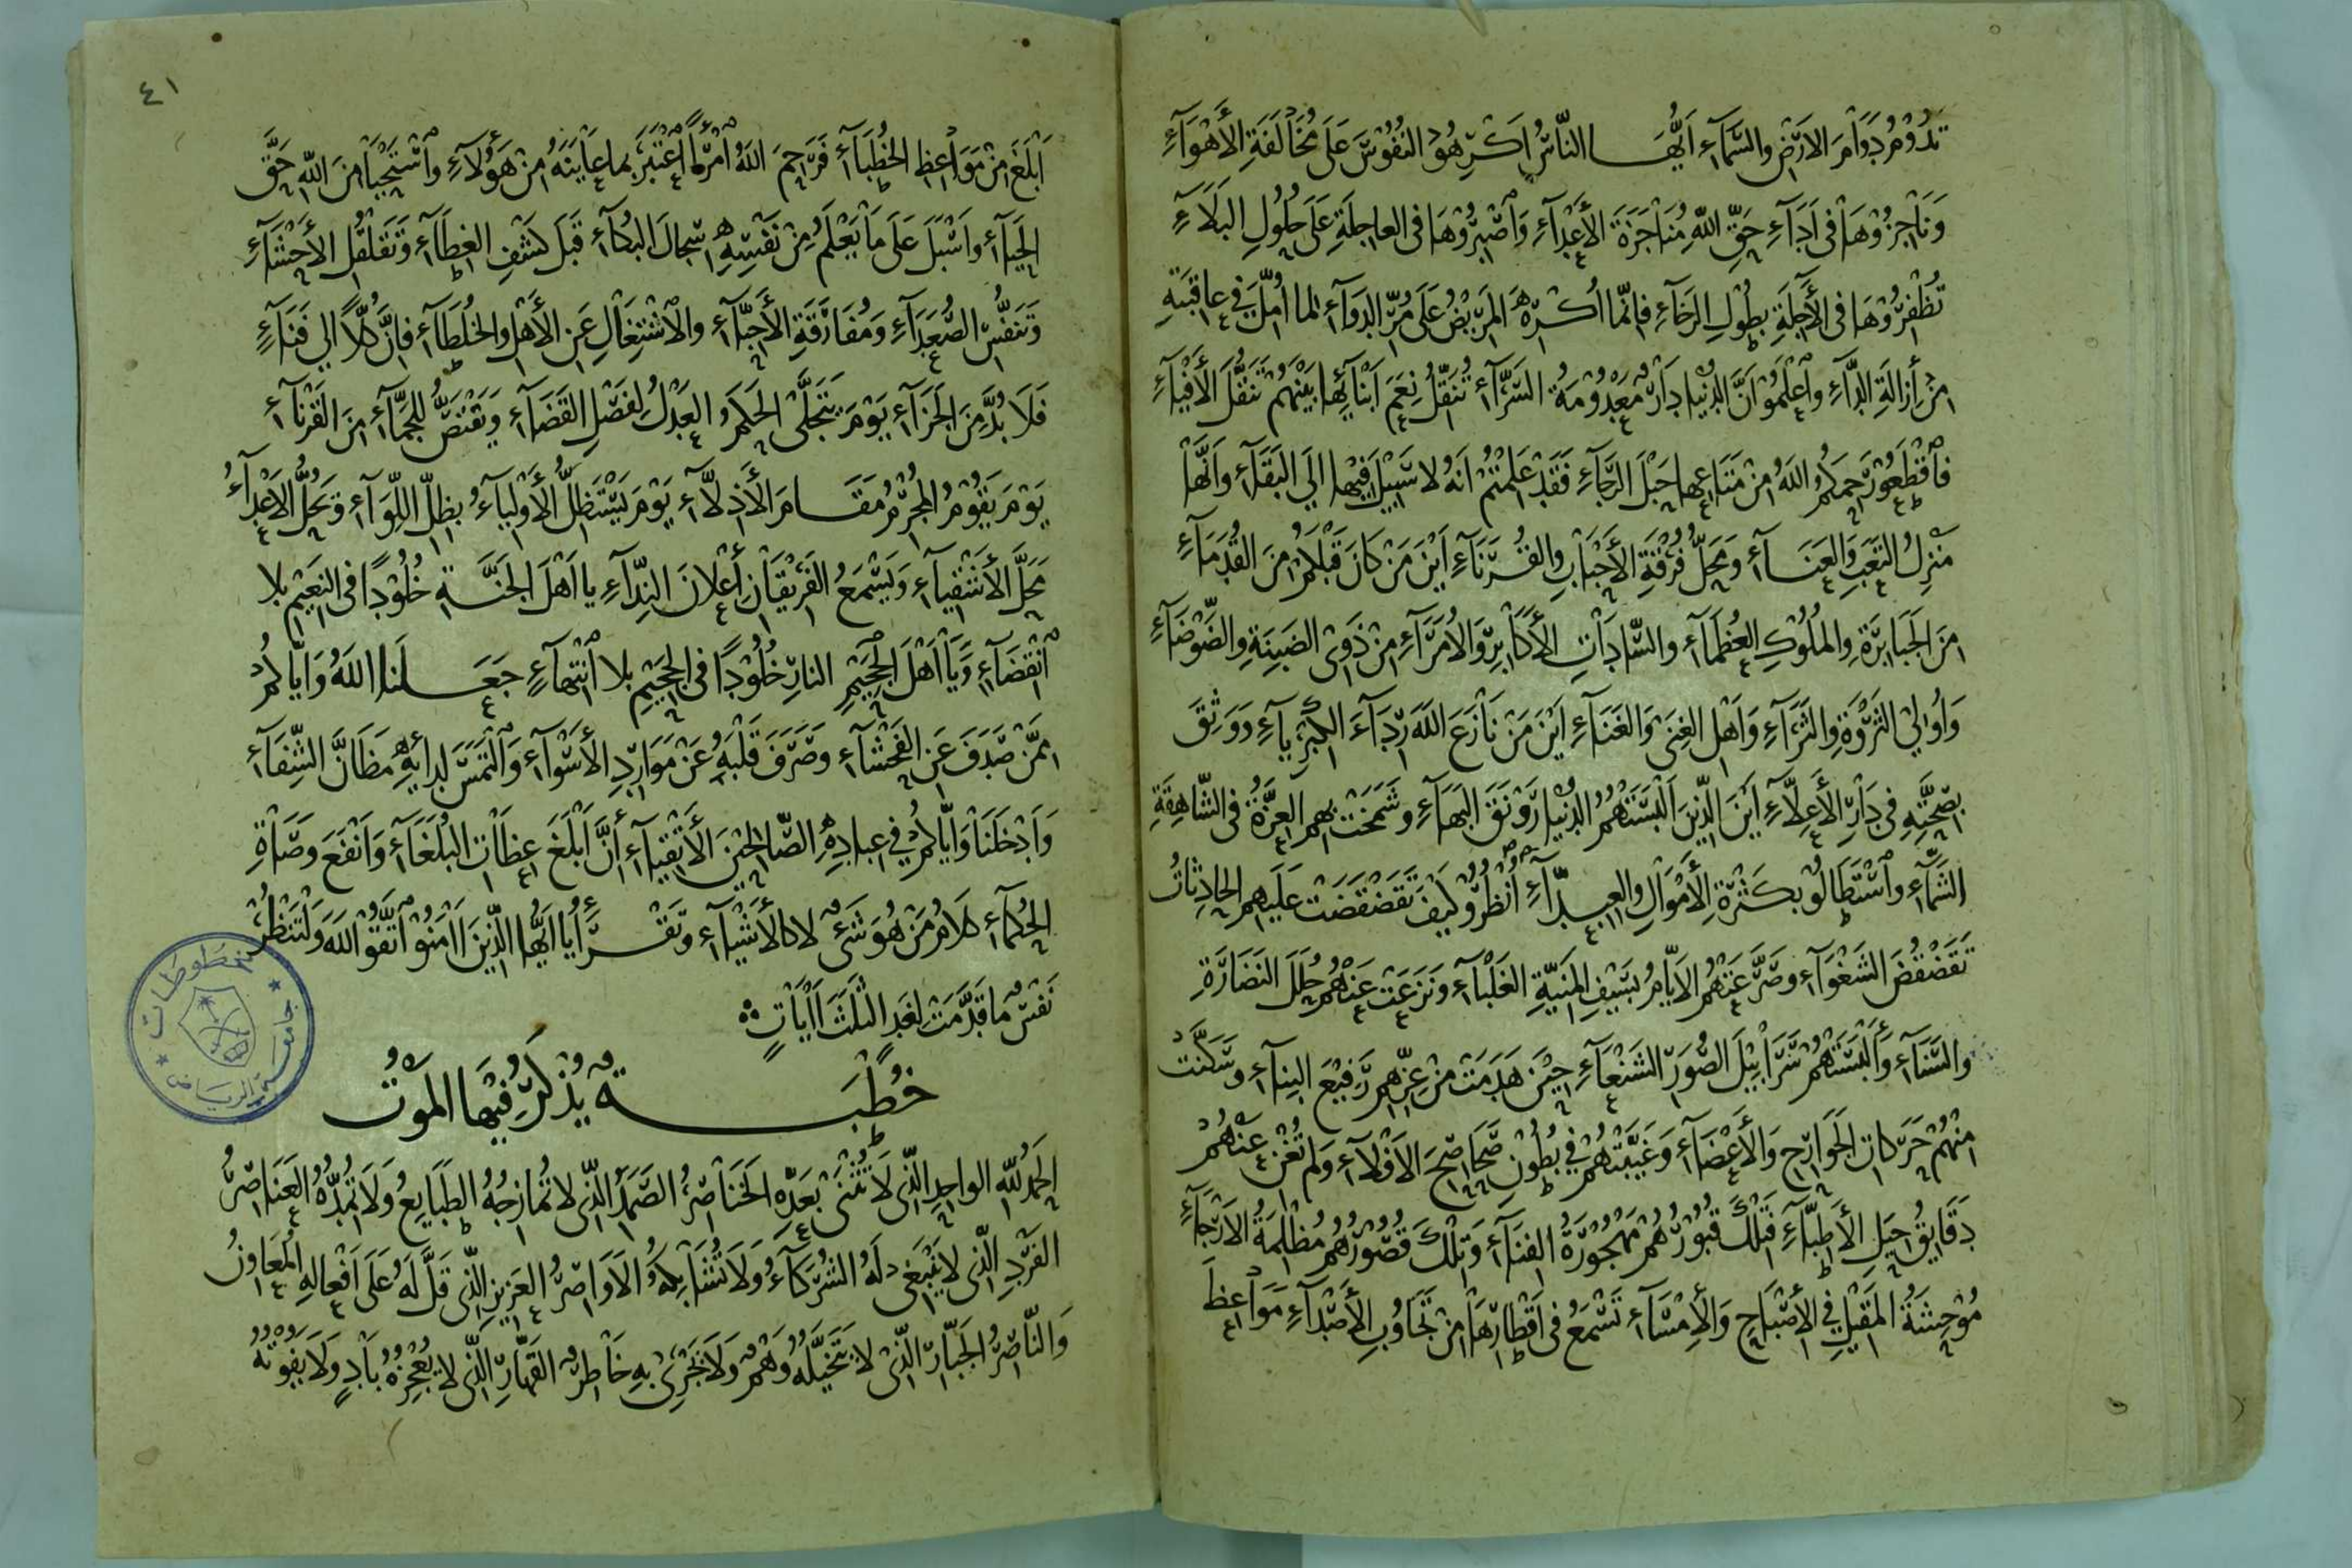 تَدُوْمُ دَوَامَ الاَرْضِ والسَّمَآءِ اَيُّهَا النَّاسُ اَكْرِهُوْ النُفُوْسَ عَلَى مُخَالَفَةِ الأَهْوَآءِ
وَنَاجِزُوْهَا فى اَدَآءِ حَقِّ اللّٰهِ مُنَاجَزَةَ الأَعْدَآءِ وَاصْبِرُوْهَا فى العاجِلَةِ عَلَى حُلُولِ البَلَآءِ
تَظْفَرُوْهَا فى الأَجِلَةِ بِطُوْلِ الرَخَآءِ فاِنَّمَا اُكْرِهَ المَرِيْضُ عَلَى مُرِّ الدَوَآءِ لِما اُمِّلَ فِي عاقِبَتِهِ
مِنْ اِزَالَةِ الدَّآءِ واَعْلَمُوْ اَنَّ الدُنْيا دَارٌ مَعْدُوْمَةُ السَّرَّآءِ تُنَقِّلُ نِعَمَ اَبْنَآئِها بَيْنَهُمْ تَنَقُّلَ الأَفْيَآءِ
فَاقْطَعُوْ رَحِمَكُمُ اللّٰهُ مِنْ مَتَاعِها حَبْلَ الرَّجَآءِ فَقَدْ عَلِمْتُمْ اَنَّهُ لا سَبِيْلَ فِيْها اِلَى البَقَآءِ وَاَنَّهَا
مَنْزِلُ التَعَبِ وَالعَنَآءِ وَمَحَلُّ فُرْقَةِ الأَحْبَابِ والقُرَنَآءِ اَيْنَ مَنْ كَانَ قَبْلَكُمْ مِنَ القُدَمَآءِ
مِنَ الجَبَابِرَةِ والمُلُوْكِ العُظَمَآءِ والسَّادَاتِ الأَكَابِرِ وَالأُمَرَآءِ مِنْ ذَوِى الضَبِنَةِ والضَّوْضَآءِ
وَاُولِيْ الثَرْوَةِ والثَرَآءِ وَاَهْلِ الغِنَى وَالغَنَآءِ اَيْنَ مَنْ نَازَعَ اللّٰهَ رِدَآءَ الكِبْرِيآءِ وَوَثِقَ
بِصِحَّتِهِ فى دَارِ الأَعِلَّآءِ اَيْنَ الَّذِيْنَ اَلْبَسَتْهُمُ الدُنْيَا رَوْنَقَ البَهَآءِ وشَمَخَتْ بِهِمُ العِزَّةُ فى الشَّاهِقَةِ
الشَمَّآءِ واَسْتَطَالُوْ بِكَثْرَةِ الأَمْوَالِ والعِبِدَّآءِ اُنْظُرُوْ كَيْفَ تَقَضْقَضَتْ عَلَيْهِمُ الحادِثَاتُ
تَقَضْقُضَ الشَغْوَآءِ وصَرَعَتْهُمُ الاَيَّامُ بِسَيْفِ المَنِيَّةِ الغَلْبَآءِ وَنَزَعَتْ عَنْهُمْ حُلَلَ النَضَارَةِ
والسَّنَآءِ وَاَلْبَسَتْهُمْ سَرَابِيْلَ الصُّوَرِ الشَنْعَآءِ حِيْنَ هَدَمَتْ مِنْ عِزِّهِمْ رَفِيْعَ البِنَآءِ وسَكَّنَتْ
مِنْهُمْ حَرَكَاتِ الجَوَارِحِ وَالأَعْضَآءِ وَغَيَّبَتْهُمْ فِي بُطُوْنِ صَحَاصِحِ الاَفْلَآءِ ولم تُغْنِ عَنْهُمْ
دَقَايِقُ حِيَلِ الأَطِبَّآءِ فَتِلْكَ قُبُوْرُهُمْ مَهْجُوْرَةُ الفِنَآءِ وَتِلْكَ قُصُوْرُهُمْ مُظْلِمَةُ الاَرْجَآءِ
مُوْحِشَةُ المَقِيْلِ فِي الاِصْبَاحِ وَالاِمْسَآءِ تَسْمَعُ فى اَقْطَارِهَا مِنْ تَجَاوُبِ الأَصْدَآءِ مَوَاعِظَ
٤١
اَبْلَغَ مِنْ مَوَاعِظِ الخُطَبَآءِ فَرَحِمَ اللّٰهُ امْرَأً اعْتَبَرَ بِما عايَنَهُ مِنْ هَؤُلَآءِ واَسْتَحْيَا مِنَ اللّٰهِ حَقَّ
الحَيَآءِ واَسْبَلَ عَلَى مَا يَعْلَمُ مِنْ نَفْسِهِ سِجَالَ البُكَآءِ قَبْلَ كَشْفِ الغِطَآءِ وتَقَلْقُلِ الأَحْشَآءِ
وَتَنَفُّسِ الصُّعَدَآءِ وَمُفَارَقَةِ الأَحِبَّآءِ والاِشْتِغَالِ عَنِ الأَهْلِ والخُلَطَآءِ فَاِنَّ كُلًّا اِلى فَنَآءٍ
فَلَا بُدَّ مِنَ الجَزَآءِ يَوْمَ يَتَجَلَّى الحَكَمُ العَدْلُ لِفَصْلِ القَضَآءِ وَيَقْتَصُّ لِلْجَمَّآءِ مِنَ القَرْنَآءِ
يَوْمَ يَقُوْمُ المُجْرِمُ مَقَامَ الأَذِلَّآءِ يَوْمَ يَسْتَظِلُّ الأَوْلِيَآءُ بِظِلِّ اللِّوَآءِ وتَحُلُّ الاَعْدَآءُ
مَحَلَّ الأَشْقِيَآءِ وَيَسْمَعُ الفَرِيْقَانِ اِعْلانَ النِّدَآءِ يا اَهْلَ الجَنَّةِ خُلُوْدًا فى النَعِيْمِ بِلا
انْقِضَآءٍ وَيَا اَهْلَ الجَحِيْمِ النارِ خُلُوْدًا فى الجَحِيْمِ بلا انْتِهَآءٍ جَعَلَنا اللّٰهُ وَاِيَّاكُمْ
مِمَّنْ صَدَفَ عَنِ الفَحْشَآءِ وصَرَفَ قَلْبَهُ عَنْ مَوَارِدِ الأَسْوَآءِ وَالْتَمَسَ لِدَائِهِ مَظَانَّ الشِّفَآءِ
وَاَدْخَلَنَا وَاِيَّاكُمْ فِي عِبادِهِ الصَّالِحِيْنَ الأَتْقِيَآءِ اِنَّ اَبْلَغَ عِظَاتِ البُلَغَآءِ وَاَنْفَعَ وَصَاةِ
الحُكَمَآءِ كَلَامُ مَنْ هُوَ شَىْءٌ لا كالأَشْيَآءِ وتَقْرَأُ يَا اَيُّهَا الَّذِيْنَ اٰمَنُوْ اتَّقُوْ اللّٰهَ وَلْتَنْظُرْ
نَفْسٌ مَا قَدَّمَتْ لِغَدٍ الثَلَثَ اٰيَاتٍ
خُطْبَةٌ يُذْكَرُ فِيْهَا المَوْتُ
الحَمْدُ لِلّٰهِ الواحِدِ الَّذِى لَا تُثْنَى بِعَدِّهِ الخَنَاصِرُ الصَّمَدِ الَّذِى لا تُمَازِجُهُ الطَبَايِعُ وَلَا تُمِدُّهُ العَنَاصِرُ
الفَرْدِ الَّذِى لا يَنْبَغِى لَهُ الشُرَكَآءُ وَلَا تُشَابِكُهُ الأَوَاصِرُ العَزِيْزِ الَّذِى قَلَّ لَهُ عَلَى اَفْعالِهِ المُعَاوِنُ
وَالنَّاصِرُ الجَبَّارِ الَّذِى لَا يَتَخَيَّلُهُ وَهْمٌ وَلَا يَجْرِىْ بِهِ خَاطِرٌ القَهَّارِ الَّذِى لا يُعْجِزُهُ بَادٍ وَلَا يَفُوْتُهُ
جامعة الرياض
مخطوطات